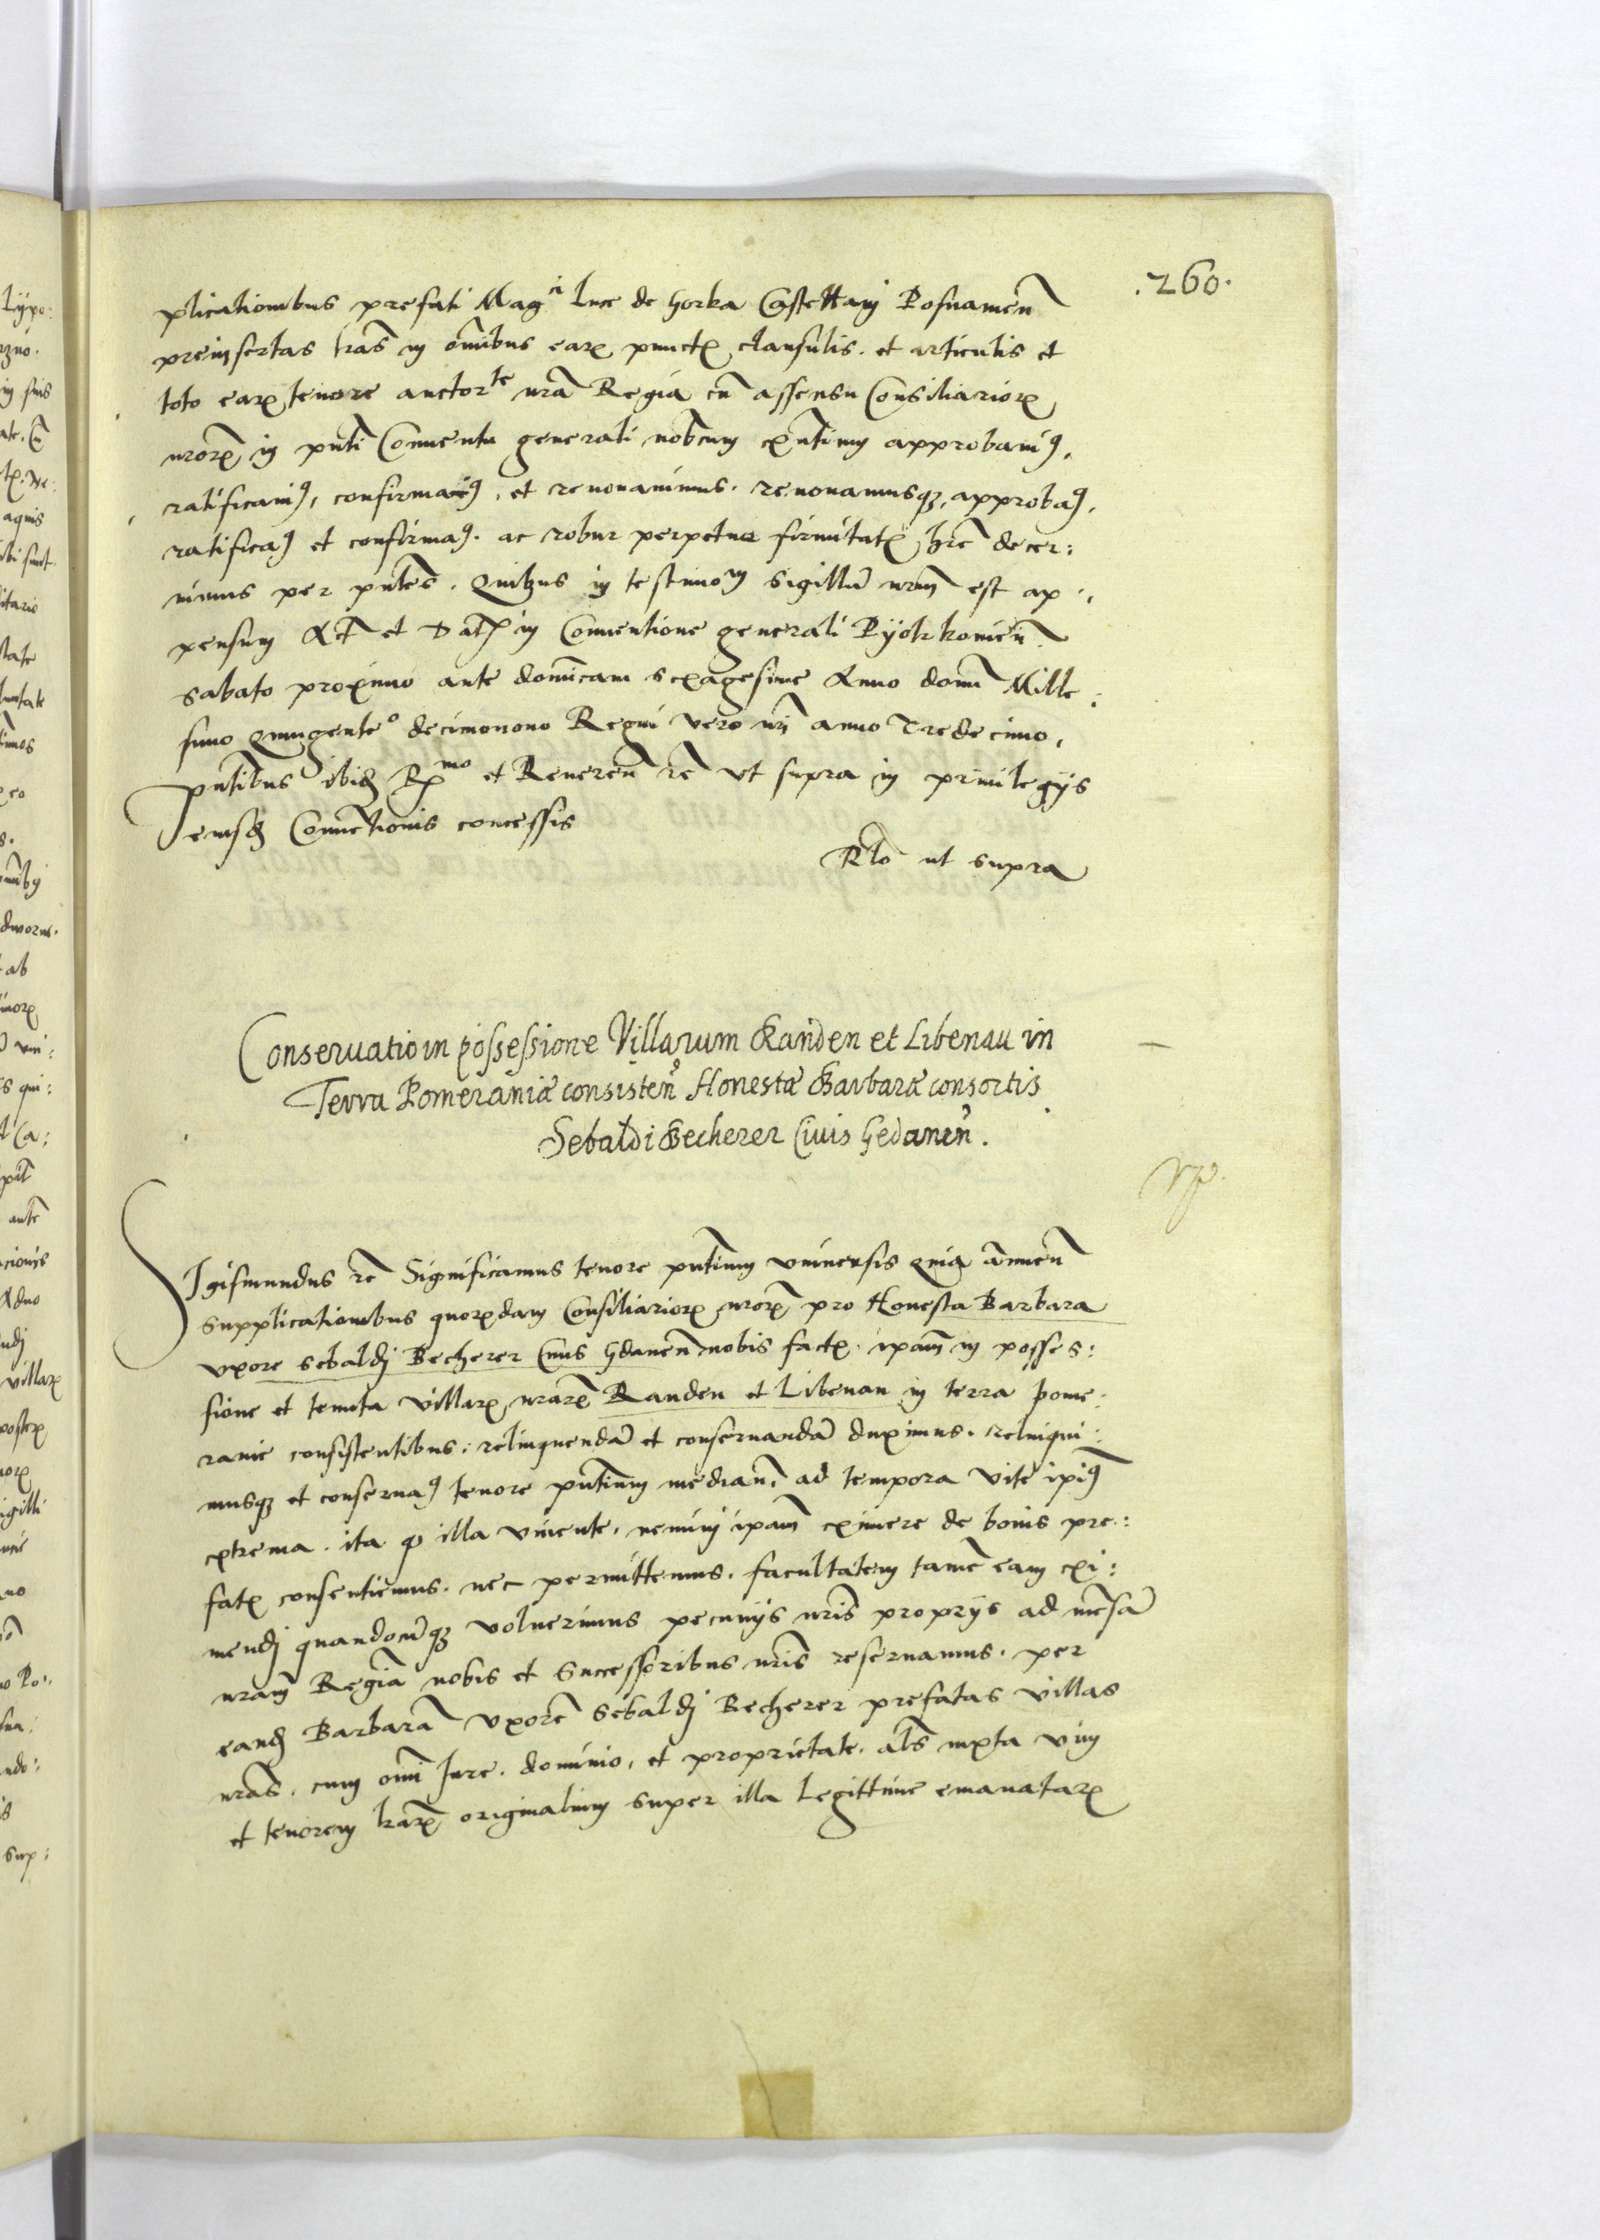 .260.
plicationibus prefati Mag^ci Luce de Horka Castellani Posnanien̄
preinsertas lr̄as in om̄ibus earꝫ punctꝭ clausulis. et articulis et
toto earꝫ tenore auctor^te nr̄a Regia cū assensu Consiliariorꝫ
nr̄orꝫ in pn̄ti Conuentu generali nobcum exn̄tium approbauiꝰ,
ratificauiꝰ, confirmauiꝰ, et renouauimus. renouamusqꝫ, approbaꝰ,
ratificaꝰ et confirmaꝰ. ac robur perpetue firmitatꝭ hr̄e decer:
nimus per pn̄tes. Quibus in testimo^m sigillū nr̄um est ap:
pensum Act̄ et Datꝭ in Conuentione generali Pyotrkouien̄.
sabato proximo ante dominicam sexagesime Anno domī Mille:
simo Quingente^o decimonono Regni vero nr̄i anno Tredecimo,
pn̄tibus ibidꝫ Rꝫ^mo et Reueren̄ rc̄ vt supra in priuilegijs
eiusdꝫ Conuentionis concessis
Rlō ut supra
Conseruatio in possessione Villarum Randen et Libenau in
Terra Pomeraniæ consisten̄ Honestæ Barbaræ consortis
Sebaldi Becherer Ciuis Gedanen̄.
SIgismundus rc̄ Significamus tenore pn̄tium vniuersis Quia annuen̄
supplicationibus quorꝫdam Consiliariorꝫ nr̄orꝫ pro Honesta Barbara
vxore Sebaldj Becherer Ciuis Gdanen̄ nobis factꝭ. ipam̄ in posses:
sione et tenuta villarꝫ nr̄arꝫ Randen et Libenau in terra pome:
ranie consistentibus: relinquendā et conseruandā duximus. relinqui:
musqꝫ et conseruaꝰ tenore pn̄tium median̄. ad tempora vite ipiꝰ
extrema. ita ꝙ illa viuente, nemini ipam̄ eximere de bonis pre:
fatꝭ consentiemus. nec permittemus. facultatem tamē eam exi:
mendj quandocūqꝫ voluerimus pecunijs nr̄is proprijs ad mēsā
nr̄am Regiā nobis et Successoribus nr̄is reseruamus. per
eandꝫ Barbarā vxorē Sebaldj Becherer prefatas villas
nr̄as. cum om̄i Jure. dominio, et proprietate. al̄s iuxta vim
et tenorem lr̄arꝫ originalium super illa legittime emanatarꝫ